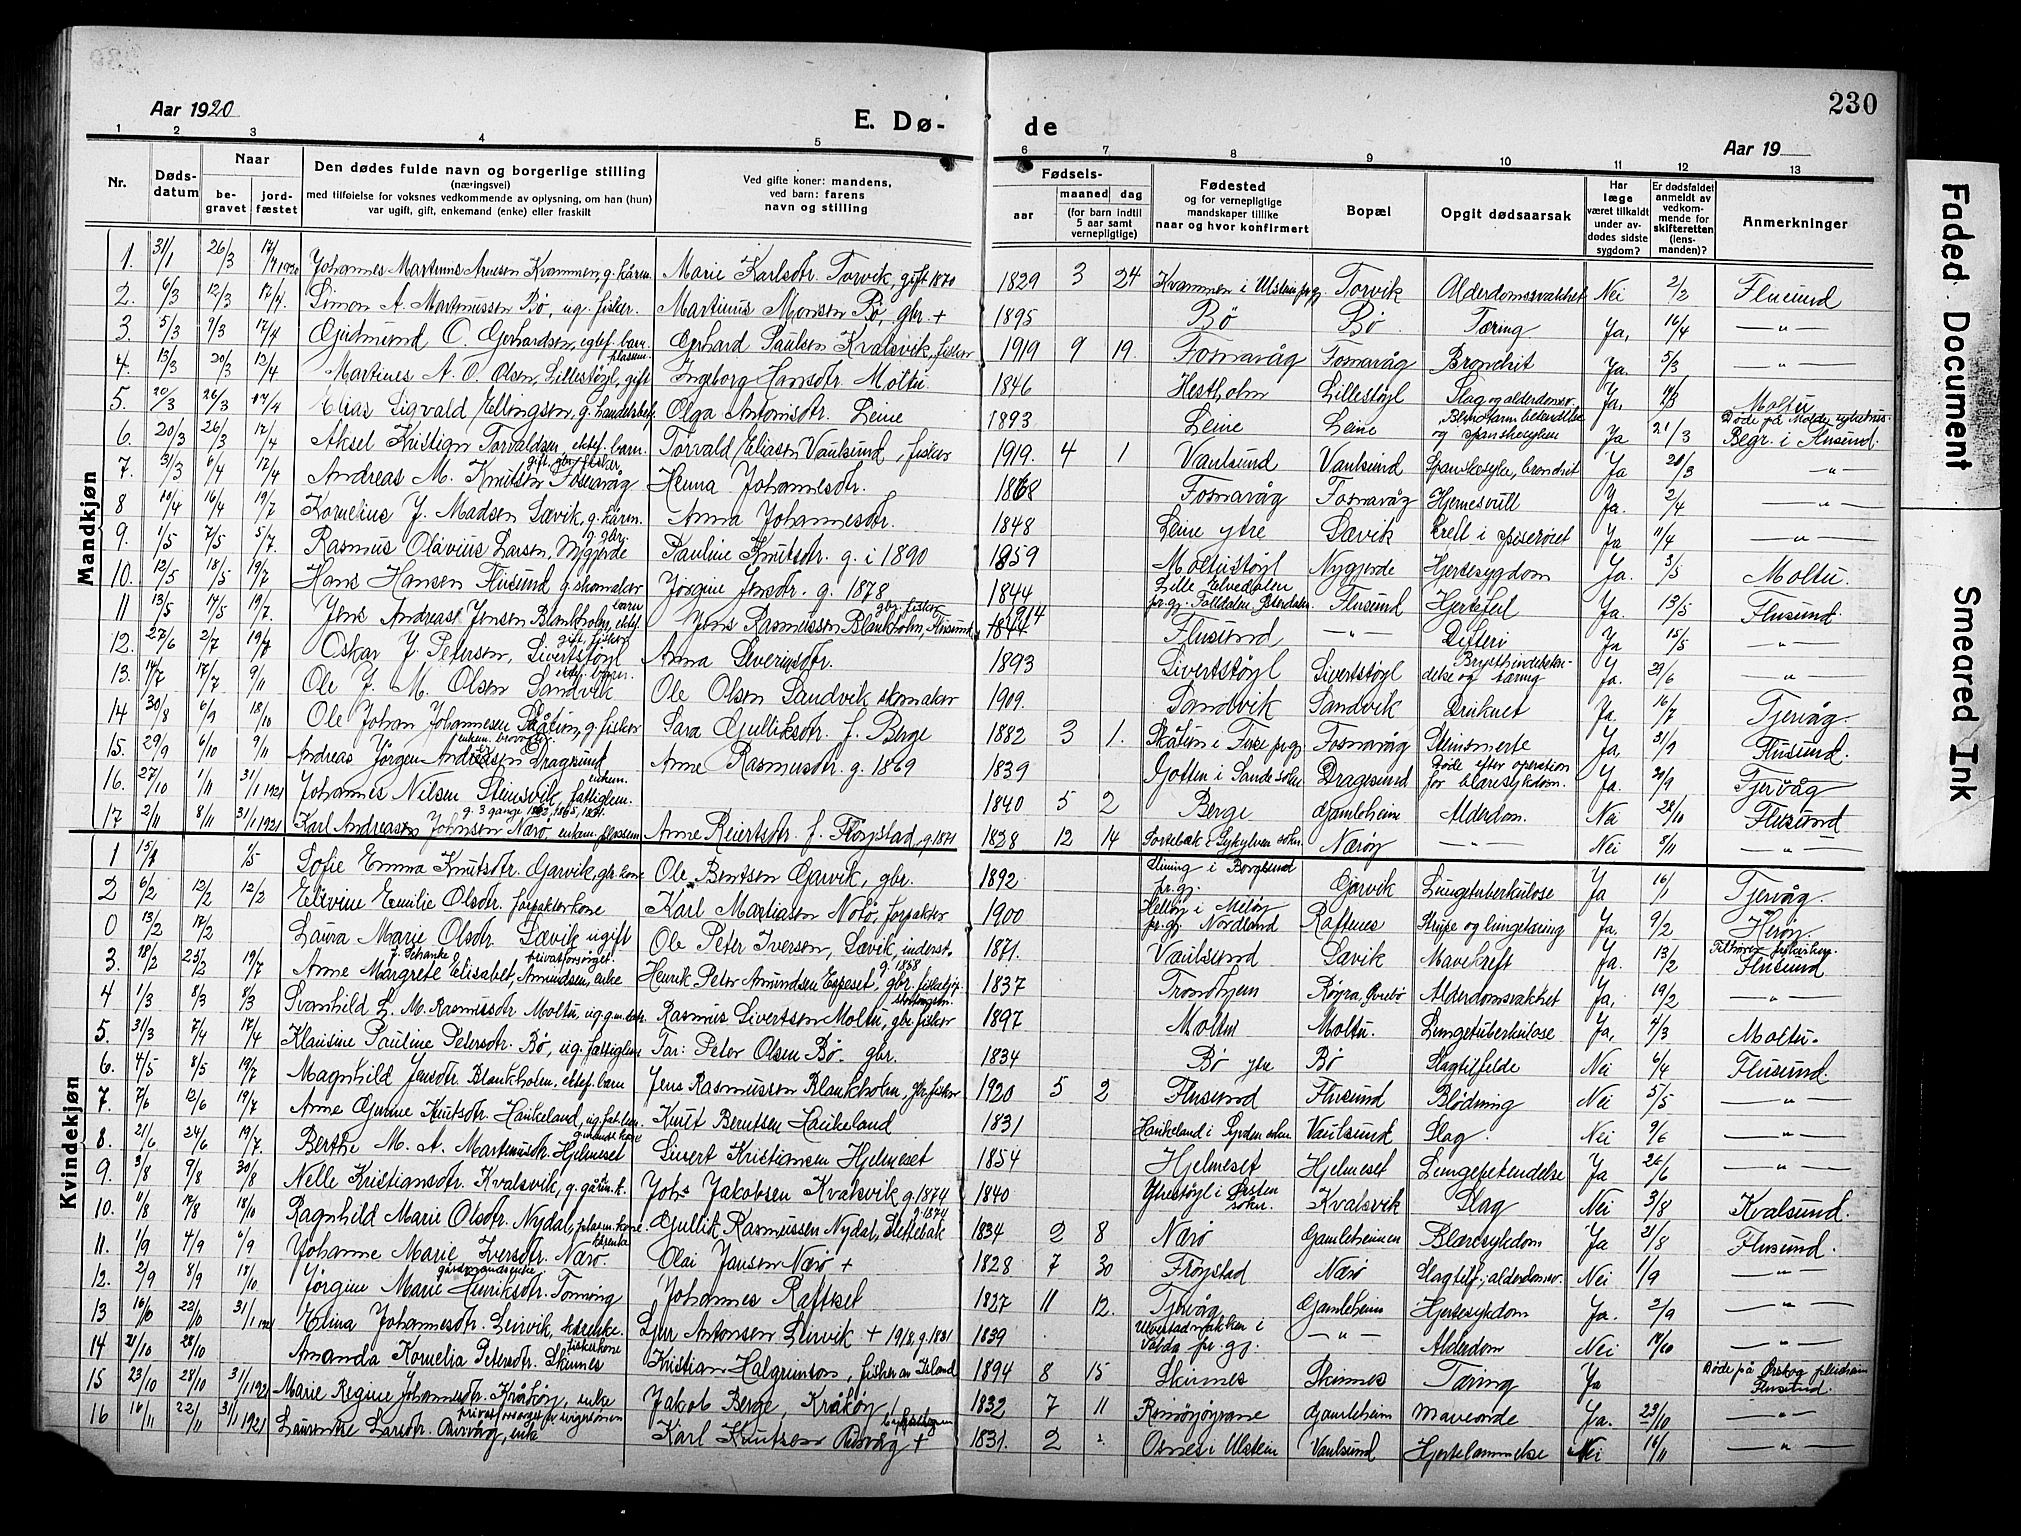 230
Aar 1920
E. Dø- de
Aar 19
1 2 3 4 5 6 7 8 9 10 11 12 13
Nr.
Døds-
datum
Naar
be-
gravet
jord-
fæstet
Den dødes fulde navn og borgerlige stilling
(næringsvei)
med tilføielse for voksnes vedkommende av oplysning, om han (hun)
var ugift, gift, enkemand (enke) eller fraskilt
Ved gifte koner: mandens,
ved barn: farens
navn og stilling
Fødsels-
aar
maaned
dag
(for barn indtil
5 aar samt
vernepligtige)
Fødested
og for vernepligtige
mandskaper tillike
naar og hvor konfirmert
Bopæl
Opgit dødsaarsak
Har
læge
været tilkaldt
under av-
dødes sidste
sygdom?
Er dødsfaldet
anmeldt av
vedkom-
mende for
skifteretten
(lens-
manden)?
Anmerkninger
Mandkjøn
1. 31/1 26/3 17/4 1920 Johannes Martinus Arnesen Kvammen, g. kåren. Marie Karlsdtr. Torvik, gift 1870 1829 3 24 Kvammen i Ulstein pr.gj. Torvik Alderdomssvakhet Nei 2/2 Flusund
2. 6/3 12/3 17/4 Simon A. Martinussen Bø, ug. fisker. Martinus Monsen Bø, gbr. + 1895 Bø Bø Tæring Ja, 16/4 —„—
3. 5/3 9/3 17/4 Gudmund O. Gerhardsen, egtef. barn. Gerhard Paulsen Kvalsvik, fisker 1919 9 19. Fosnavåg Fosnavåg Bronchit Ja. 5/3 —„—
4. 13/3 20/3 12/4 Martines A. O. Olsen, Lillestøyl, gift plassm. Ingeborg Hansdtr. Moltu. 1846 Hestholm Lillestøyl Slag og alderdomsv. Ja, 14/3 Moltu.
5. 20/3 26/3 17/4 Elias Sigvald Ellingsen, g. handelsbest. Olga Antonsdtr. Leine 1893 Leine Leine Blindtarmbetændelse og spanskesyken Ja 21/3 Døde på Molde sykehus. Begr. i Flusund.
6. 20/3 26/3 17/4 Aksel Kristian Torvaldsen, ektef. barn. Torvald Eliasen Vaulsund, fisker 1919. 4 1 Vaulsund Vaulsund Spanskesyke, bronchit Ja 20/3 —„—
7. 31/3 6/4 17/4 Andreas M. Knutsen Fosnavåg gift. gbr. fisker Henna Johannesdtr. 1868 Fosnavåg Fosnavåg Hjernesvull Ja. 2/4 —„—
8 10/4 16/4 19/7 Kornelius J. Madsen Sævik, g. kåren. Anna Johannesdtr. 1848 Leine ytre Sævik Kreft i spiserøret Ja 11/4 —„—
9. 1/5 7/5 5/7. Rasmus Olavius Larsen, Mygjerde g. gbr. Pauline Knutsdtr. g. i 1890 1859 Moltustøyl Nygjerde Hjertesygdom Ja. 3/5 Moltu.
10. 12/5 18/5 19/7 Hans Hansen Flusund g. skomaker Jørgine Jensdtr. g. 1878 1844 Lille Elvedalen pr.gj. Folldalen Østerdalen Flusund Hjertefeil Ja. 13/5 Flusund.
11 13/5 17/5 19/7. Jens Andreas Jensen Blankholm, ektef. barn Jens Rasmussen Blankholm, Flusund gbr. fisker 1914 Flusund —„— Difteri Ja 15/5 —„—
12. 27/6 2/7 19/7 Oskar J. Petersen, Sivertstøyl gift. fisker Anna Severinsdtr. 1893 Sivertstøyl Sivertstøyl Brysthindebetændelse og tæring Ja. 29/6 —„—
13. 14/7 17/7 9/11 Ole J. M. Olsen Sandvik ektef. barn. Ole Olsen Sandvik skomaker 1909. Sandvik Sandvik Druknet Ja. 16/7 Tjervåg.
14 30/8 6/9 18/10 Ole Johan Johannesen Skåtun, g. fisker Sara Gulliksdtr. f. Berge 1882 3 1. Skåtun i Fiske pr.gj. Fosnavåg Steinsmerte Ja, 31/9 Flusund.
15. 29/9 6/10 9/11 Andreas Jørgen Andresen Dragesund Anne Rasmusdtr. g. 1869 1839 Gotten i Sande sokn. Dragesund Døde efter operation for blæresykdom. Ja. 20/9 Tjervåg
16. 27/10 1/11 31/1 1921 Johannes Nilsen Steinsvik, fattiglem. enkem. 1840 5 2 Berge Gamleheim Alderdom. Nei 28/10 Flusund
17 2/11 8/11 31/1 1921 Karl Andreasen Johnsen Nærø enkem. plassem g. 3 gange Anne Reiertsdtr. f. Frøystad, g. 1871 1828 12 14 Tottebæk i Sykylven sokn. Nærøy —„— Nei 8/11 —„—
Kvindekjøn
1 15/1 1/5 Sofie Emma Knutsdtr. Gjørvik, gbr. kone Ole Bentsen Gjørvik, gbr. 1892 i Borgesund pr.gj. Gjørvik Lungetuberkulose Ja 16/1 Tjervåg.
2 6/2 12/2 12/2 Elevine Emilie Olsdtr. forpakterkone Karl Martiasen Notø, forpakter 1900 i Meløy pr.gj. Nordland Raftenes Strupe og lungetæring Ja. 9/2 Herøy.
0 13/2 17/2 Laura Marie Olsdtr. Sævik ugift Ole Peter Iversen, Sævik, inderst. 1871. Vaulsund Sævik Mavekreft Ja. 13/2
3. 18/2 25/2 19/7 Anne Margrete Elisabet, Amundsen, enke f. Schanke privatforsørget. Henrik Peter Amundsen Espeset, gbr. g. 1858 1837 Trondhjem Røyra, Øvrebø Alderdomsvakhet Ja, 19/2 Flusund —„—
4 1/3 8/3 8/3 Svanhild L. M. Rasmusdtr. Moltu, ug. gm. dtr. Rasmus Sivertsen Moltu, gbr. fisker 1897 Moltu Moltu. Lungetuberkulose Ja, 4/3 Moltu.
5. 31/3 7/4 17/4 Klausine Pauline Petersdtr. Bø, ug. fattiglem Far: Peter Olsen Bø. gbr. 1834 Bø ytre Bø Slagtilfelde Nei 6/4 Flusund.
6. 4/5 8/5 19/7 Magnhild Jensdtr. Blankholm, ektef. barn Jens Rasmussen Blankholm, gbr. fisker 1920 5 2 Flusund Flusund Blødning Nei 5/5 —„—
7. 7/6 12/6 19/7 Anne Gurine Knutsdtr. Haukeland, ug. fat. lem. Knut Berntsen Haukeland 1831 Haukeland i Syvden sokn. Vaulsund Slag. Nei 9/6 —„—
8. 21/6 24/6 19/7 Berthe M. A. Martinusdtr. Hjelmeset gmands kone Sivert Kristiansen Hjelmeset 1854 Hjelmeset Hjelmeset Lungebetendelse Ja 26/6 —„—
9 3/8 9/8 30/8 Nelle Kristiansdtr. Kvalsvik, g. gårm. k. Johs Jakobsen Kvalsvik g. 1874 1840 Ytrestøyl i Ørsten sokn. Kvalsvik Slag Nei 3/8 Kvalsund.
10. 11/8 17/8 18/10 Ragnhild Marie Olsdtr. Nydal, plasm. kone Gullik Rasmussen Nydal, Slettebak g. 1874 1834 2 8 Nærø Gamleheimen Blæresykdom Ja 21/8 Flusund.
11. 1/9 4/9 6/9 Johanne Marie Iversdtr. Nærø. kårenke Olai Jansen Nærø + 1828 7 30 Frøystad Nærø Slagtilf., alderdomsv. Nei 1/9 —„—
12. 2/9 8/9 18/10 Jørgine Marie Henriksdtr. gårdmandsenke Johannes Raftset 1827 11 12. Tjervåg Gamleheim Hjertesykdom Ja. 2/9 —„—
13 16/10 22/10 31/1 1921 Elina Johannesdtr. Leirvik, kårenke. Sjur Antonsen Leirvik + 1839 Ulvestadnakken i Volda pr. gj. —„— Alderdom Nei 18/10 —„—
14 21/10 28/10 Amanda Kornelia Petersdtr. Skinnes fiskerkone Kristian Halgrimson, fisker av Island 1894 8 15 Skinnes Skinnes Tæring Ja Døde på Ørskog pleieheim Flusund.
15 23/10 28/10 31/1 1921 Marie Regine Johannesdtr. Kråkøy, enke Jakob Berge, Kråkøy 1832 7 11 Gamleheim Maveonde Ja. 23/10 —„—
16 16/11 22/11 31/1 1921 Laurentse Larsdtr. enke privat forsørget av svigersønnen Karl Knutsen + 1831. 2 „ Osnes i Ulstein Vaulsund Hjertelammelse Nei 16/11 —„—
Faded Document
Smeared Ink